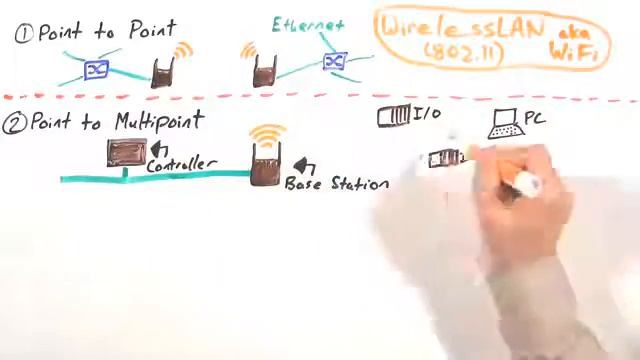 ① Point to Point
Ethernet
WirelessLAN
(802.11)
aka
WiFi
② Point to Multipoint
Controller
Base Station
I/O
PC